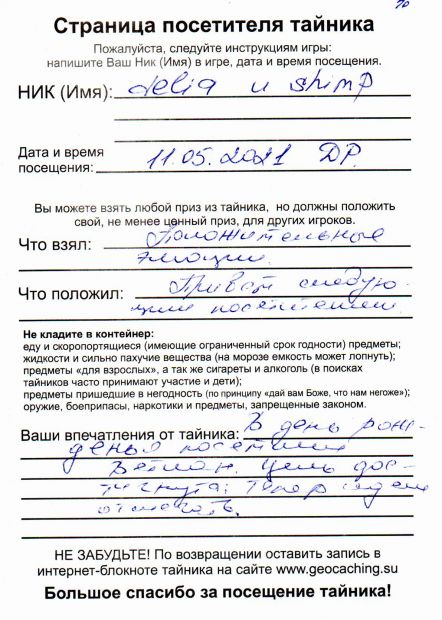 70
Страница посетителя тайника
Пожалуйста, следуйте инструкциям игры:
напишите Ваш Ник (Имя) в игре, дата и время посещения.
НИК (Имя): delia и shimp
Дата и время
посещения: 11.05.2021 ДР.
Вы можете взять любой приз из тайника, но должны положить
свой, не менее ценный приз, для других игроков.
Что взял: Положительные
эмоции.
Что положил: Привет следую-
щим посетителям
Не кладите в контейнер:
еду и скоропортящиеся (имеющие ограниченный срок годности) предметы;
жидкости и сильно пахучие вещества (на морозе емкость может лопнуть);
предметы «для взрослых», а так же сигареты и алкоголь (в поисках
тайников часто принимают участие и дети);
предметы пришедшие в негодность (по принципу «дай вам Боже, что нам негоже»);
оружие, боеприпасы, наркотики и предметы, запрещенные законом.
Ваши впечатления от тайника: В день рож-
денья посетили
Цель дос-
тигнута!
отмечать.
НЕ ЗАБУДЬТЕ! По возвращении оставить запись в
интернет-блокноте тайника на сайте www.geocaching.su
Большое спасибо за посещение тайника!